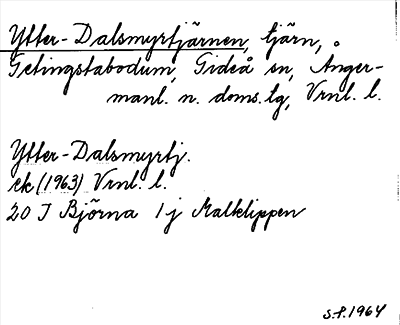 Ytter-Dalsmyrtjärnen, tjärn,
Getingstabodum, Gideå sn, Ånger-
manl. n. doms.lg, Vrnl. l.
Ytter-Dalsmyrtj.
ek (1963) Vrnl. l.
20 I Björna 1 j Malklippen
S.P. 1964